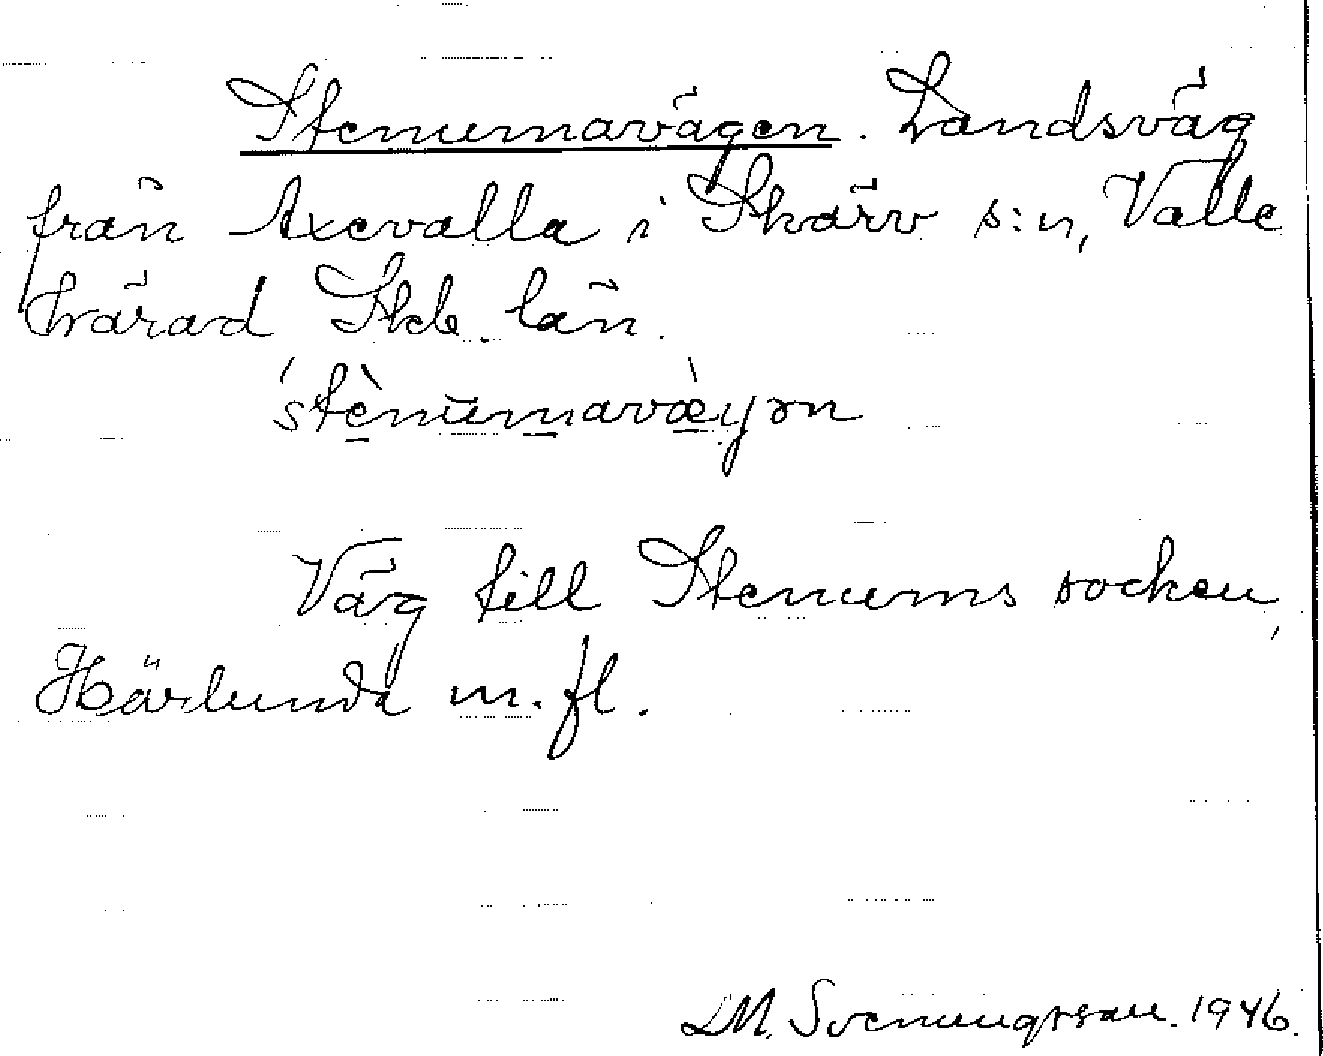 Stenumavägen. Landsväg
från Axevalla i Skärv s:n, Valle
härad Skb. län.
Väg till Stenums socken,
Härlunda m. fl.
LM. Svenungsson. 1946.